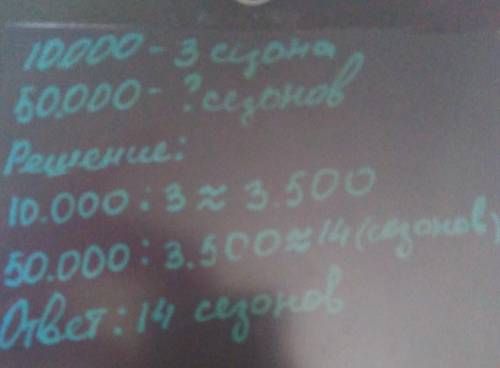 10.000 - 3 сезона
50.000 - ? сезонов
Решение:
10.000 : 3 ≈ 3.500
50.000 : 3.500 ≈ 14 (сезонов)
Ответ: 14 сезонов